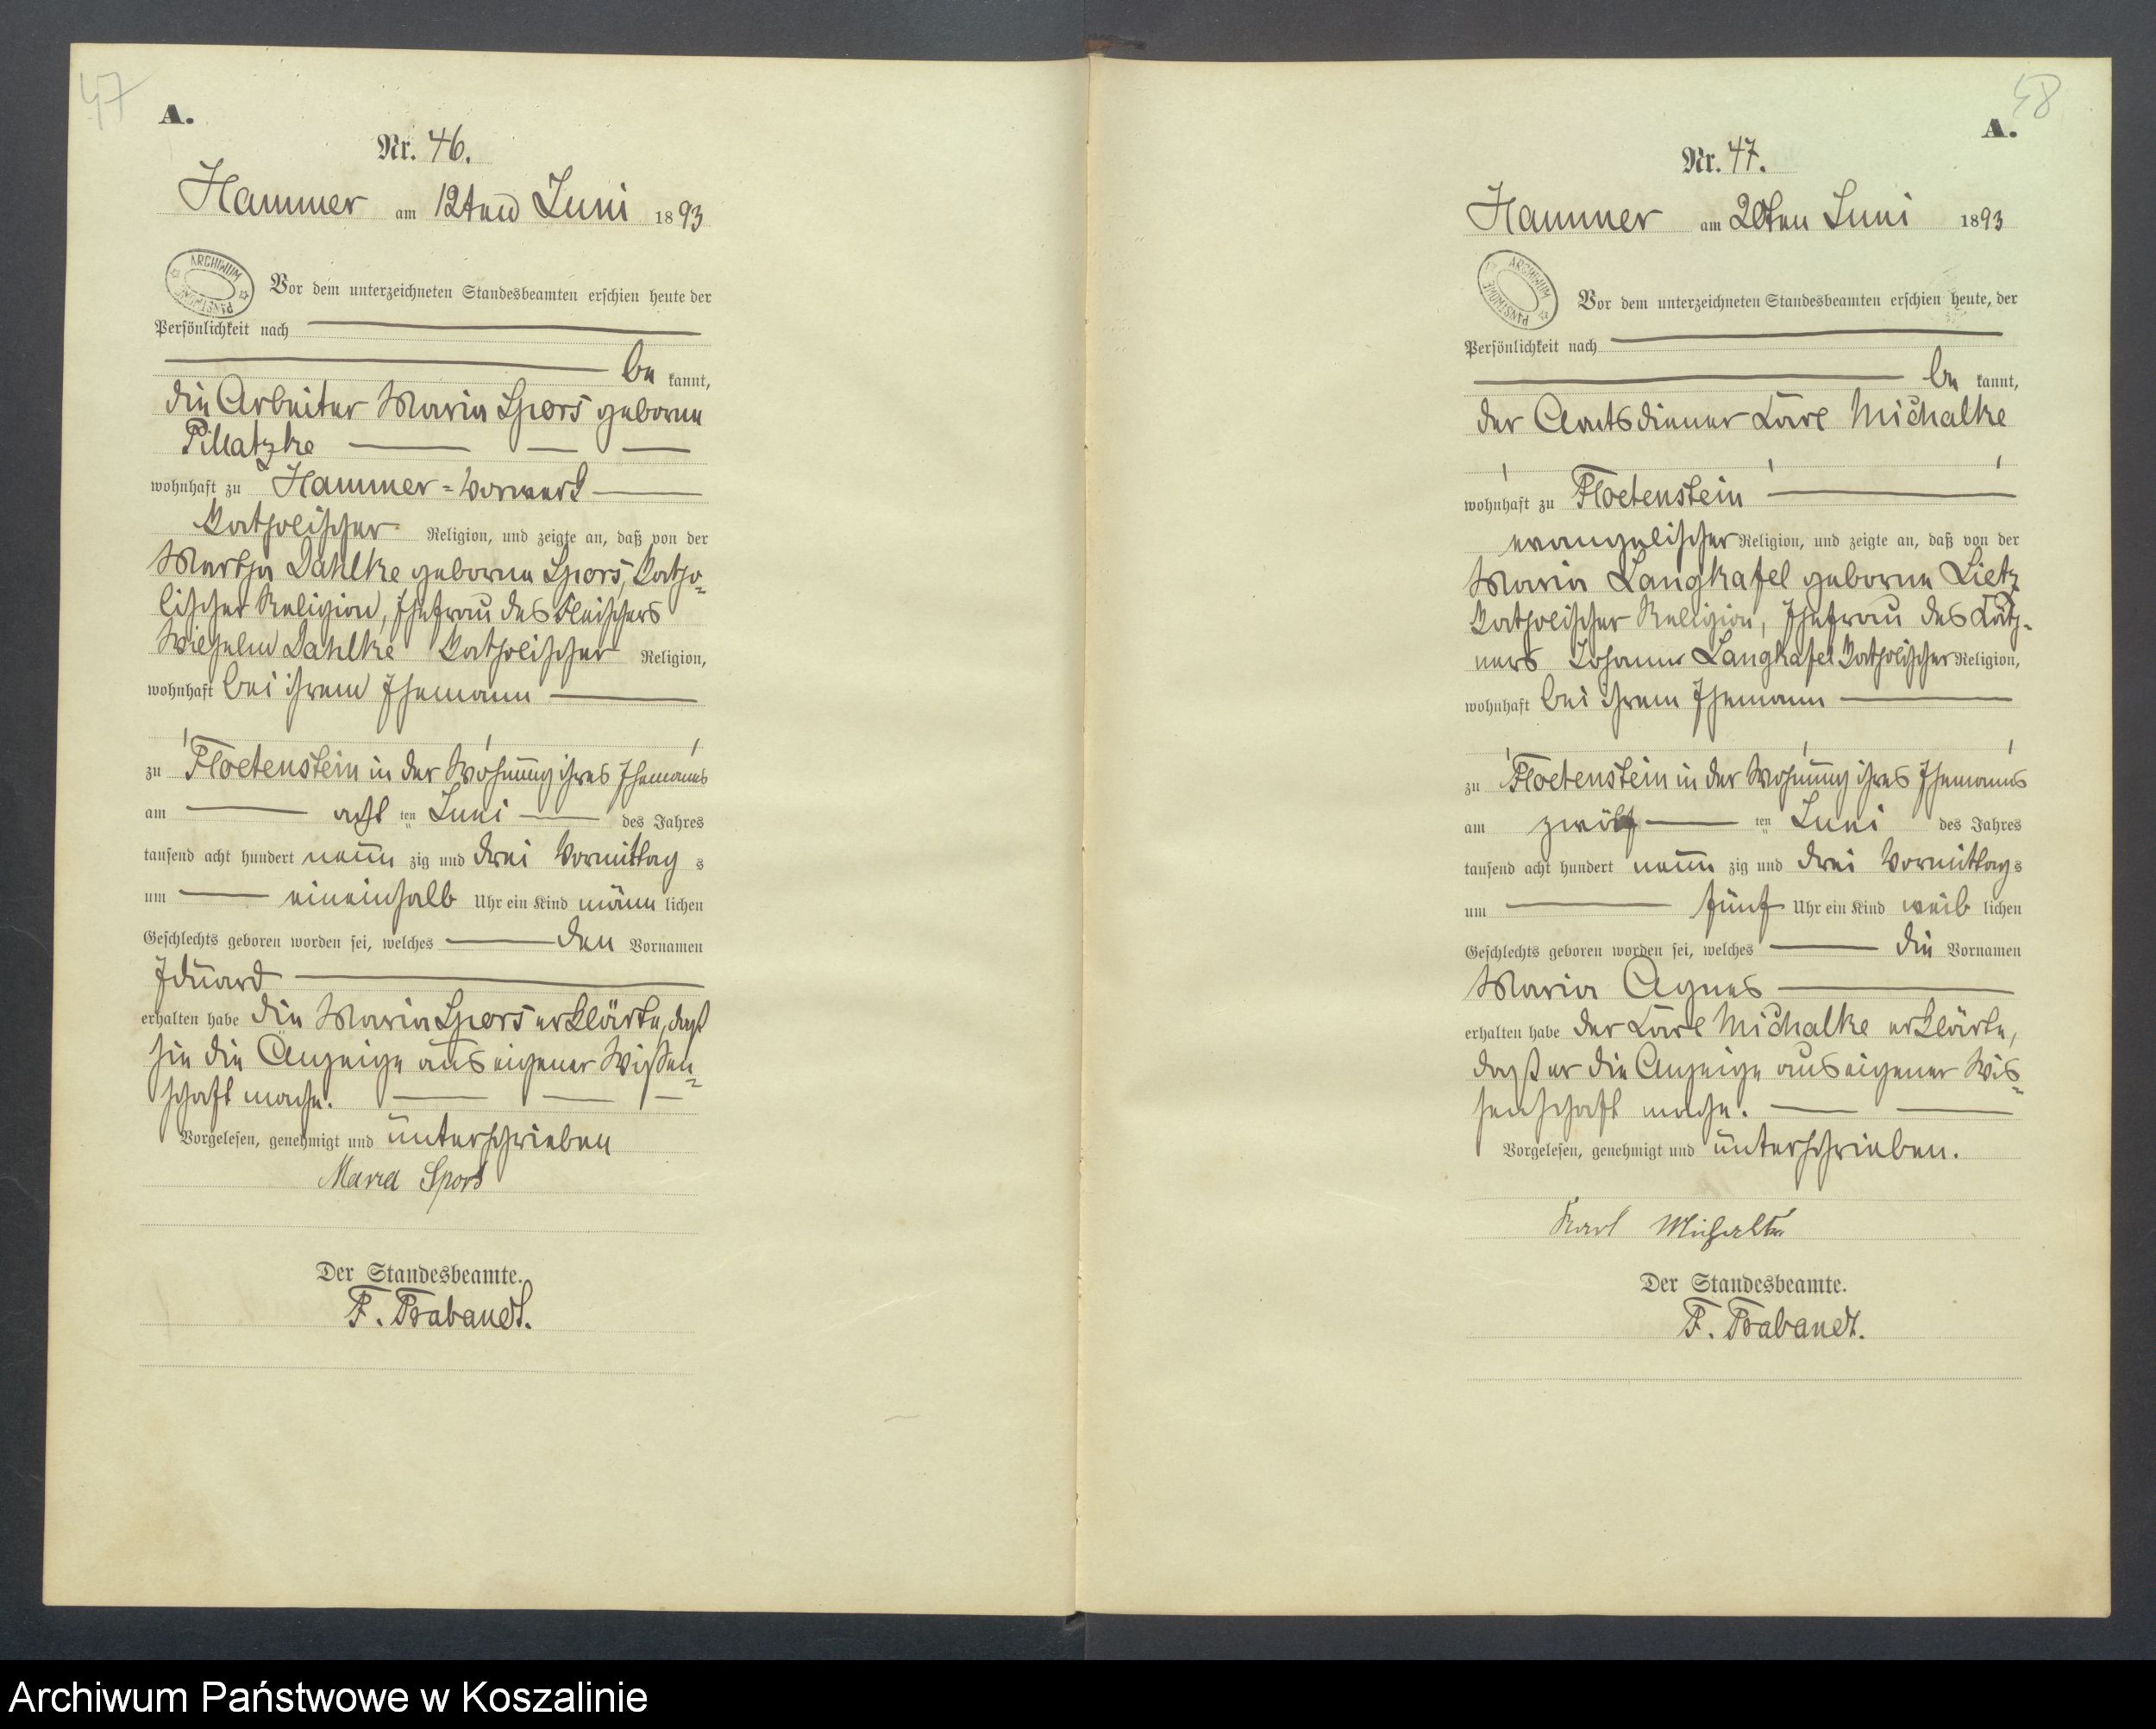 47
A.
Nr. 46.
Hammer am 12ten Juni 1893
ARCHIWUM PAŃSTWOWE
Vor dem unterzeichneten Standesbeamten erschien heute der
Persönlichkeit nach
be kannt,
die Arbeiter Maria Spors geborne
Pillatzke
wohnhaft zu Hammer=Vorwerk
Katholischer Religion, und zeigte an, daß von der
Martha Dahlke geborne Spors, Katho=
lischer Religion, Ehefrau des Fleischers
Wilhelm Dahlke Katholischer Religion,
wohnhaft bei ihrem Ehemann
zu Floetenstein in der Wohnung ihres Ehemanns
am acht ten Juni des Jahres
tausend acht hundert neun zig und drei Vormittag s
um eineinhalb Uhr ein Kind männ lichen
Geschlechts geboren worden sei, welches den Vornamen
Eduard
erhalten habe die Maria Spors erklärte, daß
sie die Anzeige aus eigener Wissen=
schaft mache.
Vorgelesen, genehmigt und unterschrieben
Maria Spors
Der Standesbeamte.
F. Brabandt.
48
A.
Nr. 47.
Hammer am 20ten Juni 1893
ARCHIWUM PAŃSTWOWE
Vor dem unterzeichneten Standesbeamten erschien heute, der
Persönlichkeit nach
be kannt,
der Amtsdiener Karl Michalke
wohnhaft zu Floetenstein
evangelischer Religion, und zeigte an, daß von der
Maria Langkafel geborne Lietz
Katholischer Religion, Ehefrau des Käth-
ners Johann Langkafel Katholischer Religion,
wohnhaft bei ihrem Ehemann
zu Floetenstein in der Wohnung ihres Ehemanns
am zwölf ten Juni des Jahres
tausend acht hundert neun zig und drei Vormittag s
um fünf Uhr ein Kind weib lichen
Geschlechts geboren worden sei, welches die Vornamen
Maria Agnes
erhalten habe der Karl Michalke erklärte,
daß er die Anzeige aus eigener Wis=
senschaft mache.
Vorgelesen, genehmigt und unterschrieben.
Karl Michalke
Der Standesbeamte.
F. Brabandt.
Archiwum Państwowe w Koszalinie